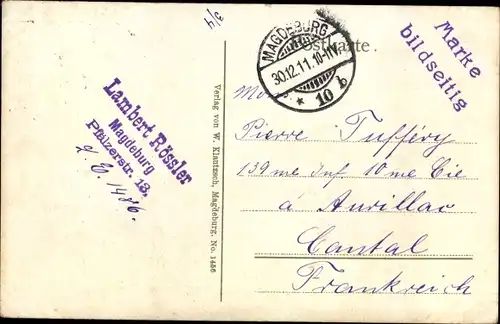 3/4
Postkarte.
MAGDEBURG
30.12.11. 10-11V.
* 10 b
Marke
bildseitig
Lambert Rössler
Magdeburg
Pfälzerstr. 13.
Verlag von W. Klautzsch, Magdeburg. No. 1486
Pierre Tuffery
139me Inf 10me Cie
à Aurillac
Cantal
Frankreich